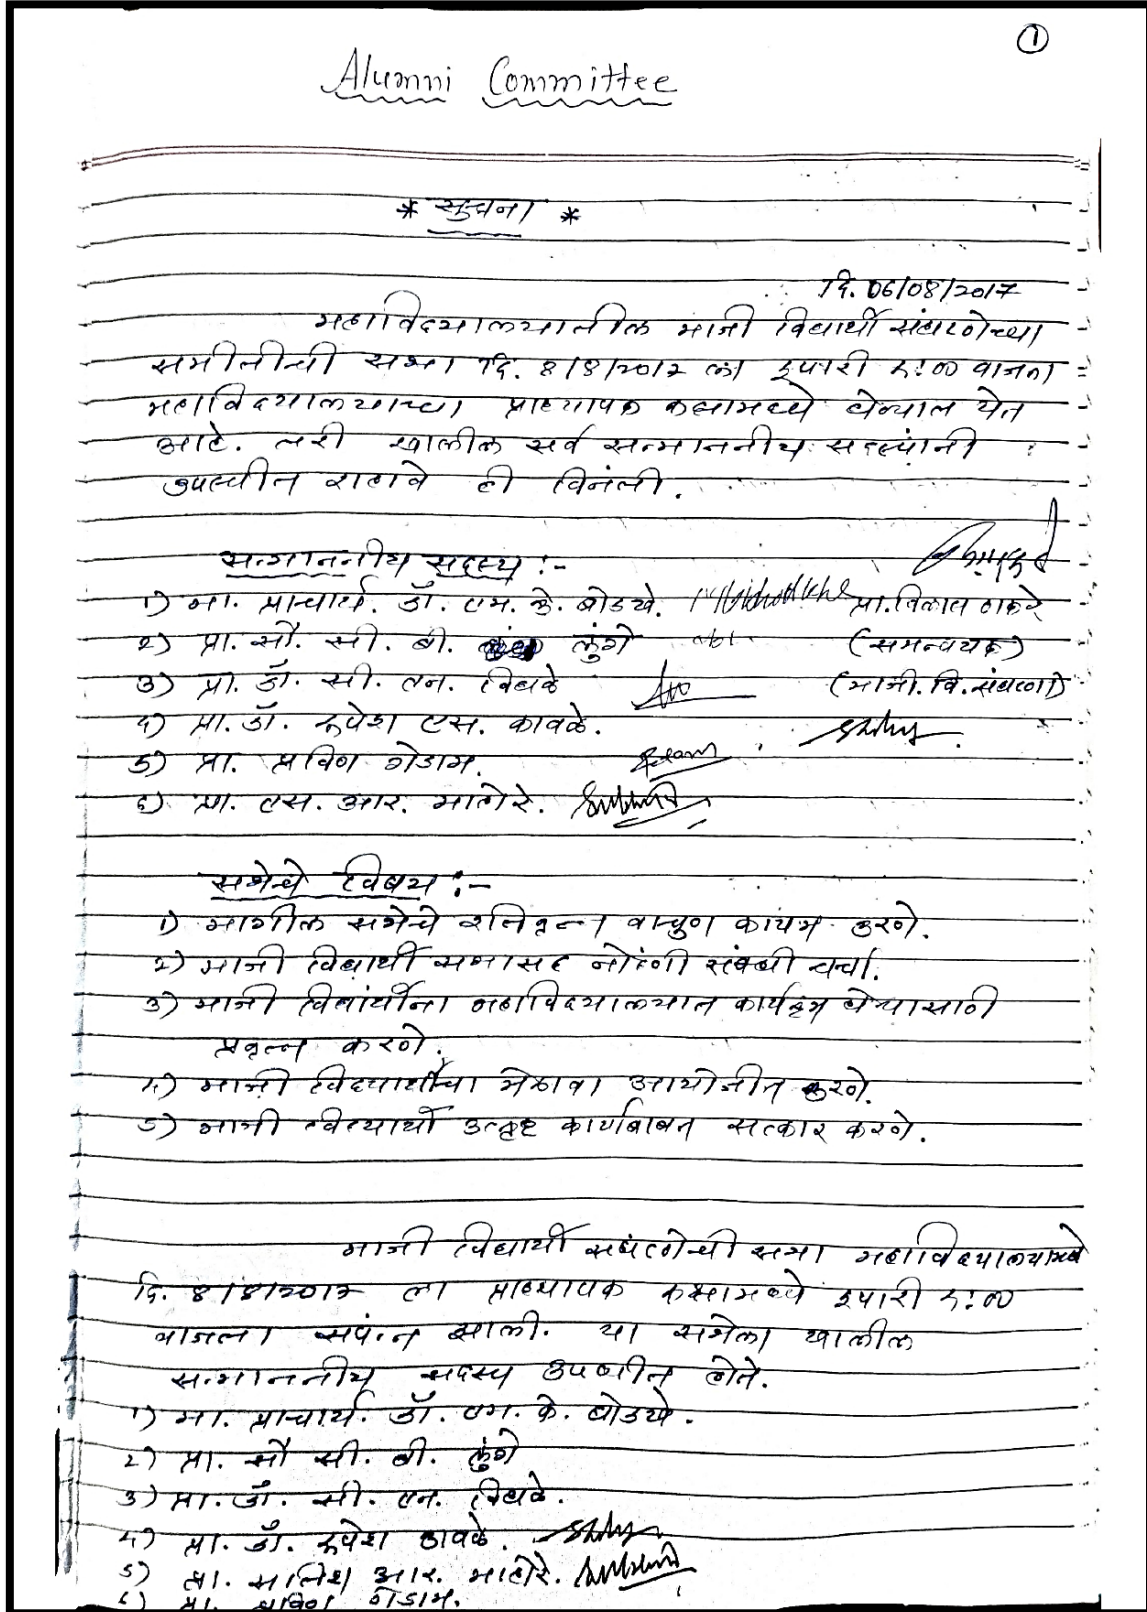 ①
Alumni Committee
* सुचना *
दि. 06/08/2017
महाविद्यालयातील माजी विद्यार्थी संघटणेच्या
समीतीची सभा दि. ८/८/२०१७ ला दुपारी ५:०० वाजता
महाविद्यालयाच्या प्राध्यापक कक्षामध्ये घेण्यात येत
आहे. तरी खालील सर्व सन्माननीय सदस्यांनी
उपस्थीत राहावे ही विनंती.
सन्माननीय सदस्य :-
१) मा. प्राचार्य. डॉ. एम. के. बोडखे. प्रा. विलास ठाकरे
२) प्रा. सौ. सी. बी. लुंगे (समन्वयक)
३) प्रा. डॉ. सी. एन. विघळे (माजी. वि. संघटणा)
४) प्रा. डॉ. रूपेश एस. कावळे.
५) प्रा. प्रविण गेडाम.
६) प्रा. एस. आर. माहोरे.
सभेचे विषय :-
१) मागील सभेचे इतिवृत्त वाचुण कायम करणे.
२) माजी विद्यार्थी सभासद नोंदणी संबंधी चर्चा.
३) माजी विद्यार्थीना महाविद्यालयात कार्यक्रम घेण्यासाठी
प्रवृत्त करणे.
४) माजी विद्यार्थीचा मेळावा आयोजीत करणे.
५) माजी विद्यार्थी उत्कृष्ट कार्याबाबत सत्कार करणे.
माजी विद्यार्थी संघटणेची सभा महाविद्यालयामध्ये
दि. ८/८/२०१७ ला प्राध्यापक कक्षामध्ये दुपारी ५:००
वाजता संपन्न झाली. या सभेला खालील
सन्माननीय सदस्य उपस्थीत होते.
१) मा. प्राचार्य. डॉ. एम. के. बोडखे.
२) प्रा. सौ सी. बी. लुंगे
३) प्रा. डॉ. सी. एन. विघळे.
४) प्रा. डॉ. रूपेश कावळे.
५) प्रा. सतिश आर. माहोरे.
६) प्रा. प्रविण गेडाम.